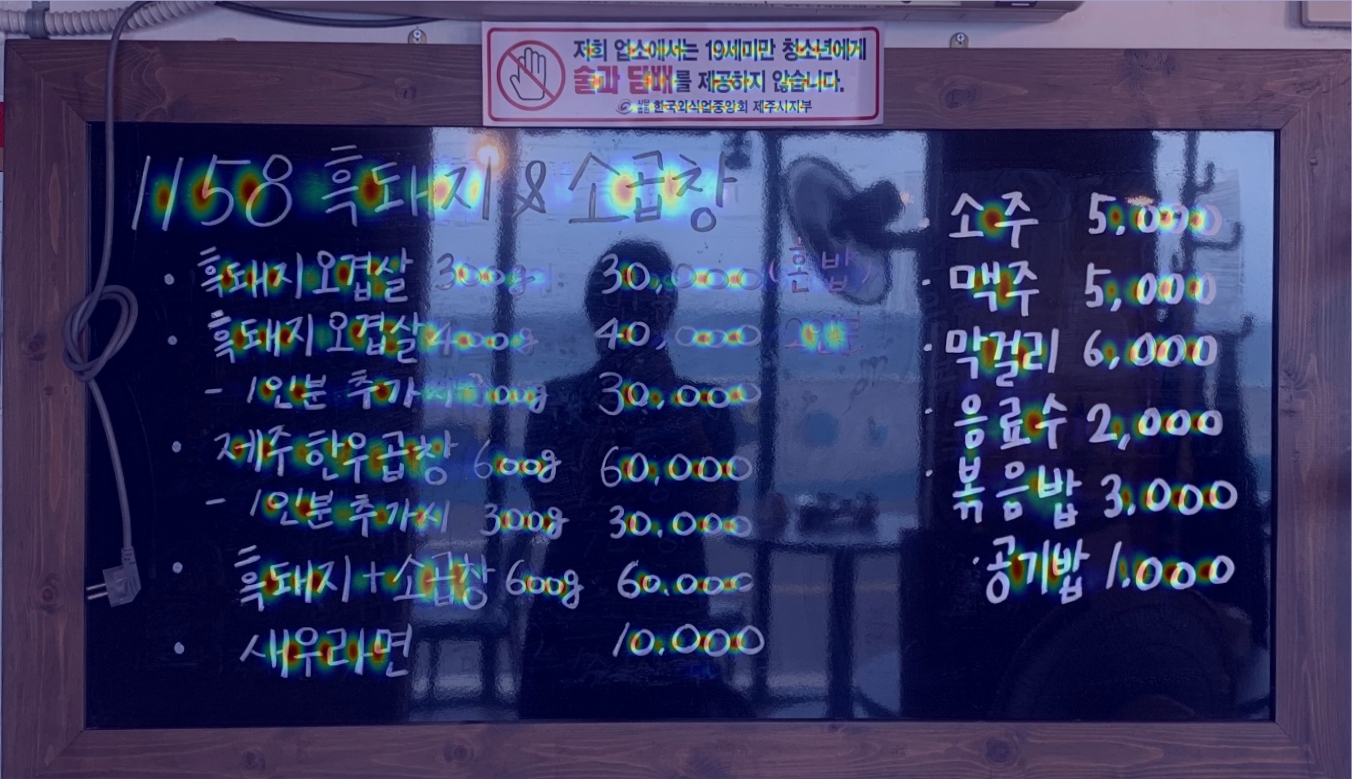 저희 업소에서는 19세미만 청소년에게
술과 담배를 제공하지 않습니다.
한국외식업중앙회 제주시지부
1158 흑돼지 & 소곱창
· 흑돼지오겹살 300g 30,000 (혼밥)
· 흑돼지오겹살 400g 40,000
- 1인분 추가시 300g 30,000
· 제주한우곱창 600g 60,000
- 1인분 추가시 300g 30,000
· 흑돼지+소곱창 600g 60.000
· 새우라면 10,000
· 소주 5,000
· 맥주 5,000
· 막걸리 6,000
· 음료수 2,000
· 볶음밥 3,000
· 공기밥 1.000